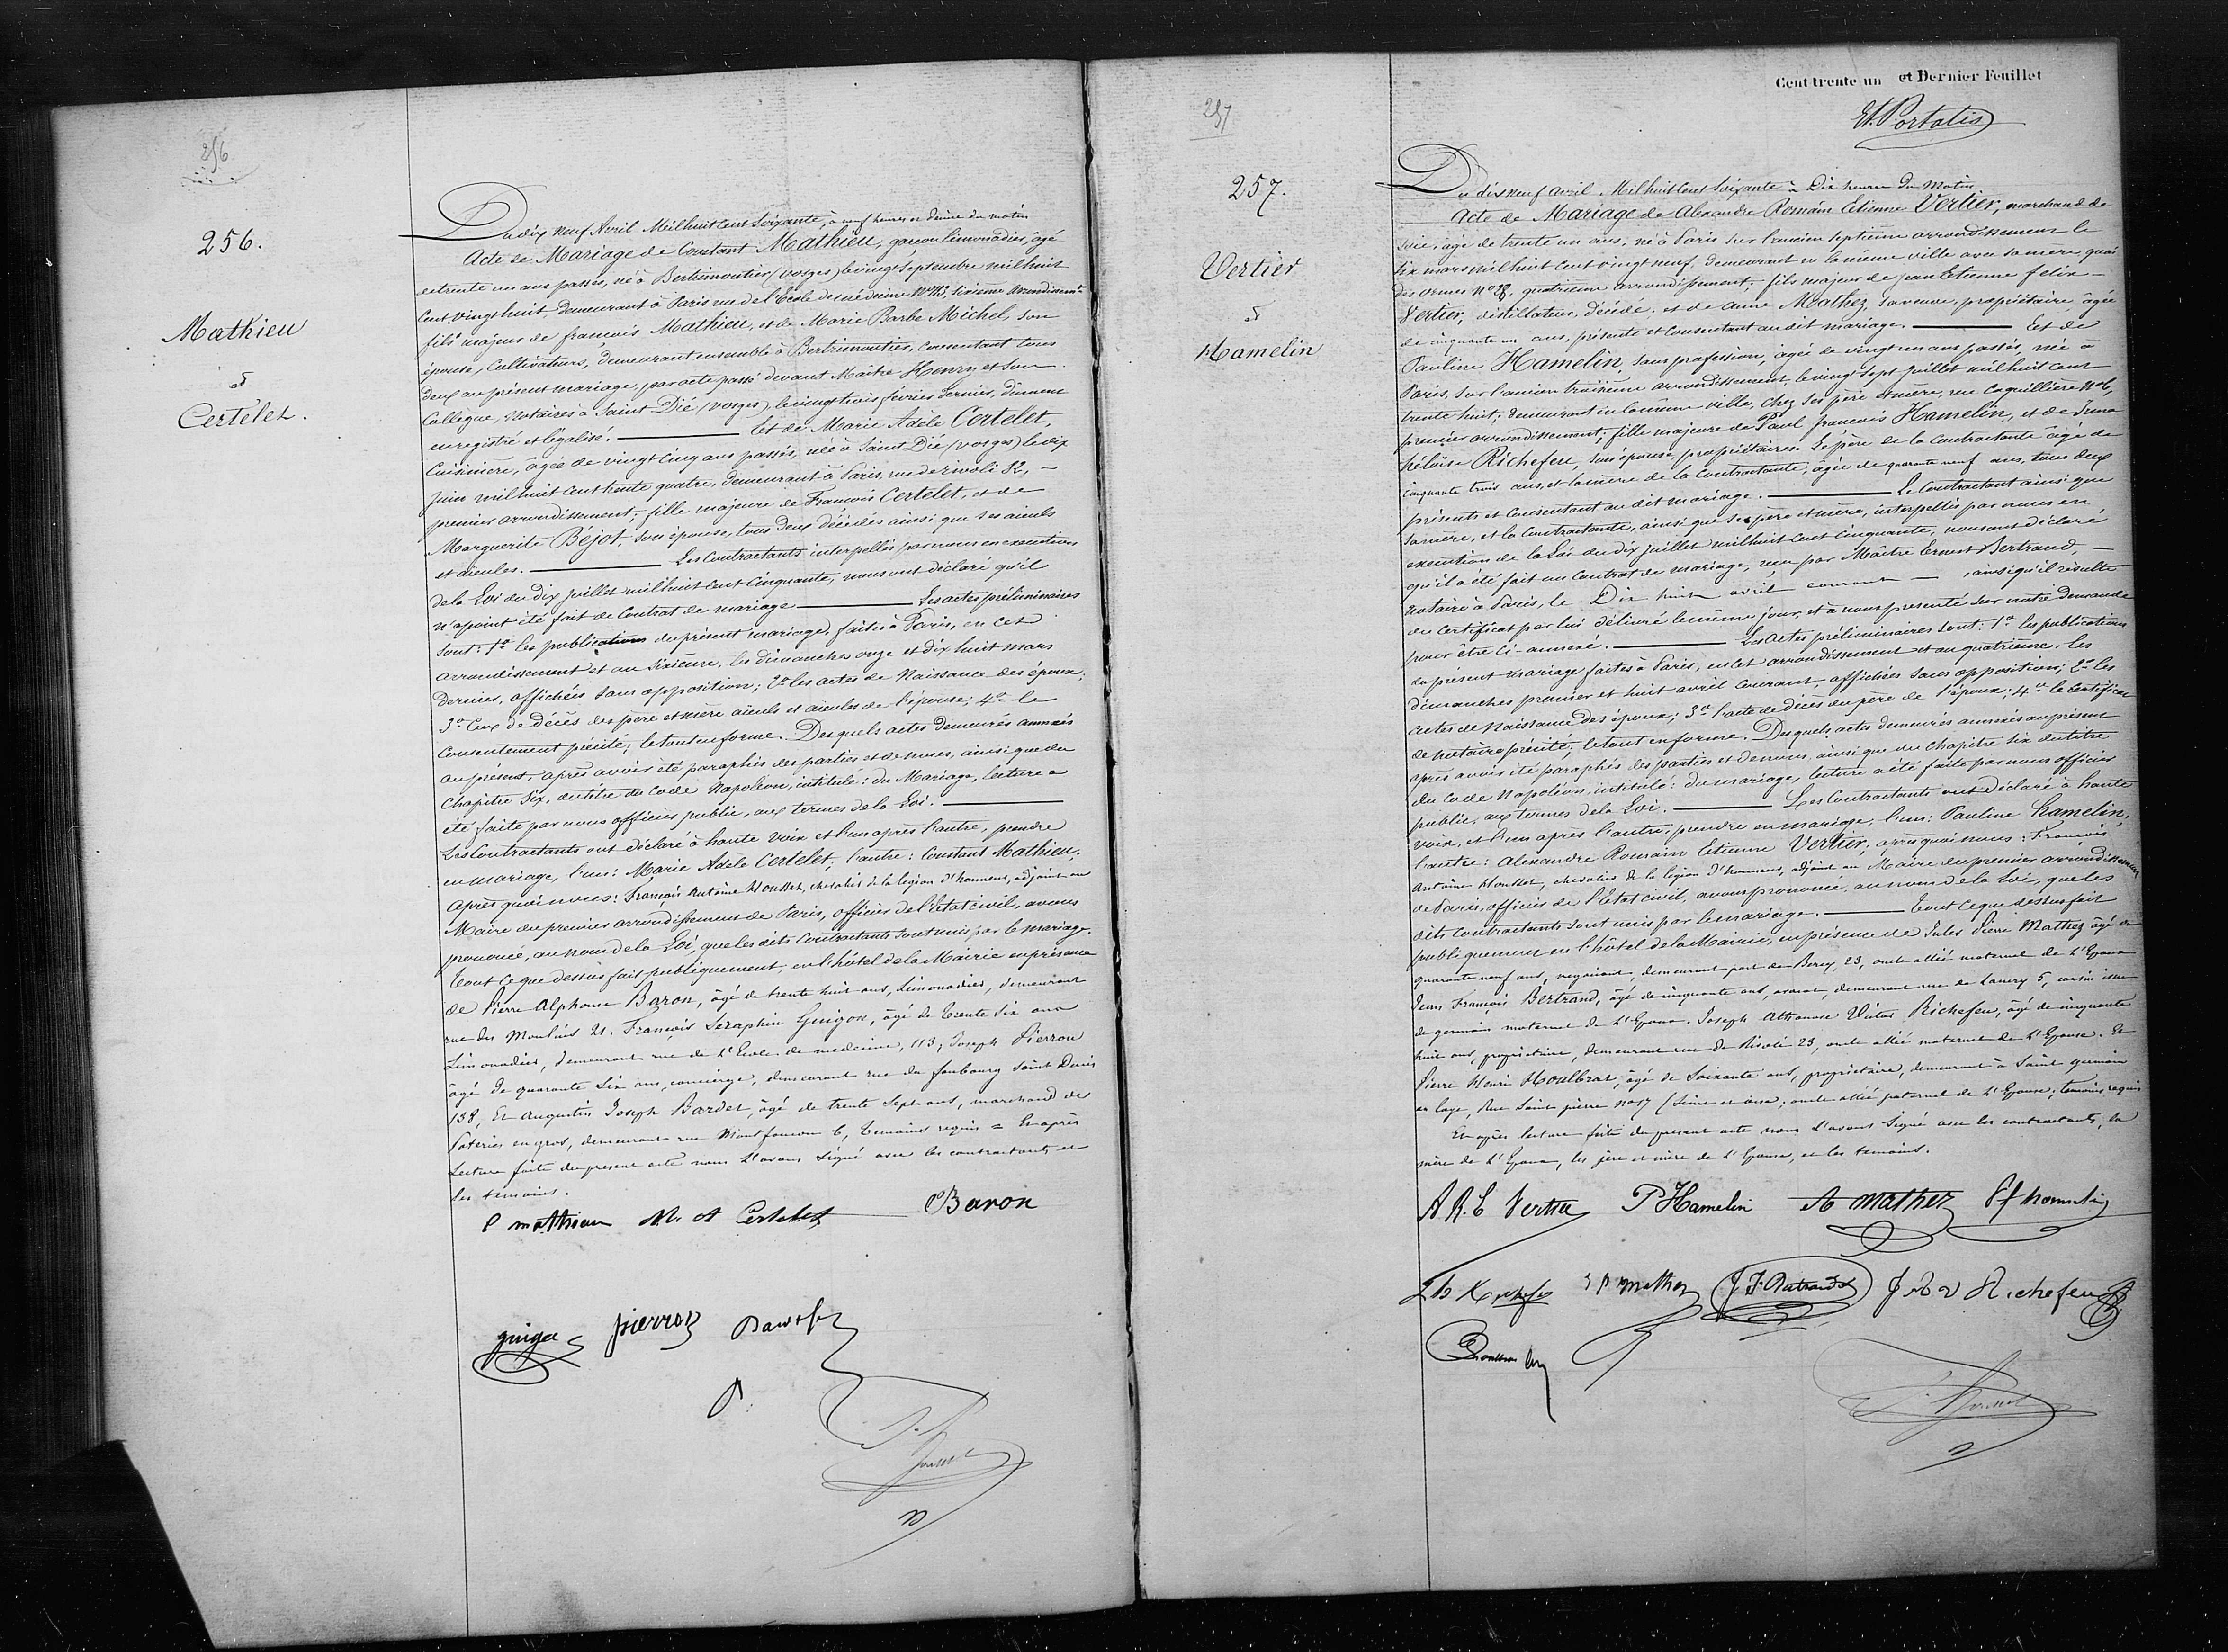 256
256.
Mathieu
et
Certelet.
Du dix neuf Avril Mil huit cent Soixante, à neuf heures et demie du matin
Acte de Mariage de Constant Mathieu, garçon limonadier, âgé
de trente un ans passés, né à Bertrimoutier (vosges) le vingt Septembre mil huit
cent vingt huit demeurant à Paris rue de l'Ecole de médecine No 113, Sixième Arrondissemt
fils majeur de françois Mathieu, et de Marie Barbe Michel, son
épouse, Cultivateurs, demeurant ensemble à Bertrimoutier, consentant tous
deux au présent mariage, par acte passé devant Maître Henry et son
Collègue, Notaires à Saint Dié (vosges) le vingt trois février dernier, dûment
enregistré et légalisé. — Et de Marie Adèle Certelet,
Cuisinière, âgée de vingt cinq ans passés, née à Saint Dié (vosges) le dix
Juin mil huit cent trente quatre, demeurant à Paris, rue de rivoli 82, —
premier arrondissement; fille majeure de François Certelet, et de
Marguerite Béjot, son épouse, tous deux décédés ainsi que ses aïeuls
et aïeules. — Les Contractants interpellés par nous en exécution
de la Loi du dix juillet mil huit cent cinquante, nous ont déclaré qu'il
n'a point été fait de Contrat de mariage — Les actes préliminaires
sont: 1o les publications du présent mariage, faites à Paris, en cet
arrondissement et au Sixième, les dimanches onze et dix huit mars
dernier, affichées sans opposition; 2o les actes de Naissance des époux;
3o Ceux de décès des père et mère aïeuls et aïeules de l'épouse; 4o le
Consentement précité; le tout en forme. Desquels actes demeurés annexés
au présent, après avoir été paraphés des parties et de nous, ainsi que du
Chapitre Six, du titre du Code Napoléon, intitulé: du Mariage, lecture a
été faite par nous officier public, aux termes de la Loi. —
Les Contractants ont déclaré à haute voix et l'un après l'autre, prendre
en mariage, l'un: Marie Adèle Certelet, l'autre: Constant Mathieu,
après quoi nous: François Antoine Housset, chevalier de la légion d'honneur, adjoint au
Maire du premier arrondissement de Paris, officier de l'état civil, avons
prononcé, au nom de la Loi, que les dits Contractants sont unis par le mariage.
Tout ce que dessus fait publiquement, en l'hôtel de la Mairie en présence
de Pierre Alphonse Baron, âgé de trente huit ans, Limonadier, demeurant
rue des Moulins 21. François Séraphin Guigon, âgé de trente Six ans
Limonadier, demeurant rue de l'Ecole de médecine, 113; Joseph Pierron
âgé de quarante Six ans, concierge, demeurant rue du faubourg Saint Denis
138, Et Augustin Joseph Bardet, âgé de trente Sept ans, marchand de
Poteries en gros, demeurant rue Montfaucon 6, témoins requis = Et après
Lecture faite du présent acte nous l'avons signé avec les contractants et
les témoins.
C mathieu M. A Certelet Baron
pierron
257
257.
Vertier
et
Hamelin
Cent trente un et Dernier Feuillet
Et. Portalis
Du dix neuf Avril Mil huit Cent Soixante à Dix heures du Matin
Acte de Mariage de Alexandre Romain Etienne Vertier, marchand de
soie, âgé de trente un ans, né à Paris sur l'ancien septième arrondissement le
Six mars mil huit cent vingt neuf, demeurant en la même ville avec sa mère quai
des ormes No 28, quatrième arrondissement, fils majeur de jean Etienne félix —
Vertier, distillateur, décédé, et de Anne Mathez, sa veuve, propriétaire, âgée
de cinquante un ans, présente et Consentant au dit mariage. — Et de
Pauline Hamelin, sans profession, âgée de vingt un ans passés, née à
Paris, sur l'ancien troisième arrondissement, le vingt sept juillet mil huit cent
trente huit; demeurant en la même ville, chez ses père et mère, rue Coquillière No 6,
premier arrondissement; fille majeure de Paul françois Hamelin, et de Irma
héloïse Richefeu, son épouse, propriétaires. Le père de la Contractante âgé de
Cinquante trois ans, et la mère de la Contractante, âgée de quarante neuf ans, tous deux
présents et Consentant au dit mariage. — Le Contractant ainsi que
sa mère, et la Contractante, ainsi que ses père et mère, interpellés par nous en
exécution de la Loi du dix juillet mil huit cent cinquante, nous ont déclaré
qu'il a été fait un Contrat de mariage, reçu par Maître Ernest Bertrand, —
notaire à Paris, le Dix huit avril courant — , ainsi qu'il résulte
du Certificat par lui délivré le même jour, et à nous présenté sur notre demande
pour être Ci-annexé. — Les Actes préliminaires sont: 1o les publications
du présent mariage faites à Paris, en cet arrondissement et au quatrième, les
dimanches premier et huit avril Courant, affichées sans opposition; 2o les
actes de Naissance des époux; 3o l'acte de décès du père de l'époux; 4o le Certificat
de notaire précité; le tout en forme. Desquels actes demeurés annexés au présent
après avoir été paraphés des parties et de nous, ainsi que du Chapitre six du titre
du Code Napoléon, intitulé: du mariage, lecture a été faite par nous officier
public, aux termes de la Loi. — Les Contractants ont déclaré à haute
voix, et l'un après l'autre, prendre en mariage, l'un: Pauline hamelin,
l'autre: Alexandre Romain Etienne Vertier, après quoi nous: François
Antoine Housset, chevalier de la légion d'honneur, adjoint au Maire du premier arrondissement
de Paris, officier de l'Etat civil, avons prononcé, au nom de la Loi, que les
dits Contractants sont unis par le mariage. — Tout ce que dessus fait
publiquement en l'hôtel de la Mairie, en présence de Jules Pierre Mathez âgé de
quarante neuf ans, négociant, demeurant port de Bercy, 23, oncle allié maternel de l'Epoux
Jean François Bertrand, âgé de cinquante ans, avocat, demeurant rue de Lancry 5, cousin issu
de germain maternel de l'Epoux. Joseph Athanase Victor Richefeu, âgé de cinquante
huit ans, propriétaire, demeurant rue de Rivoli 23, oncle allié maternel de l'Epouse. Et
Pierre Henri Houlbrat, âgé de Soixante ans, propriétaire, demeurant à Saint germain
en laye, Rue Saint pierre No 17 (Seine et oise; oncle allié paternel de l'Epouse; témoins requis
Et après lecture faite du présent acte nous l'avons signé avec les contractants, la
mère de l'Epoux, les père et mère de l'Epouse, et les témoins.
A. R. E Vertier P Hamelin A mathez
J. F. Bertrand Richefeu